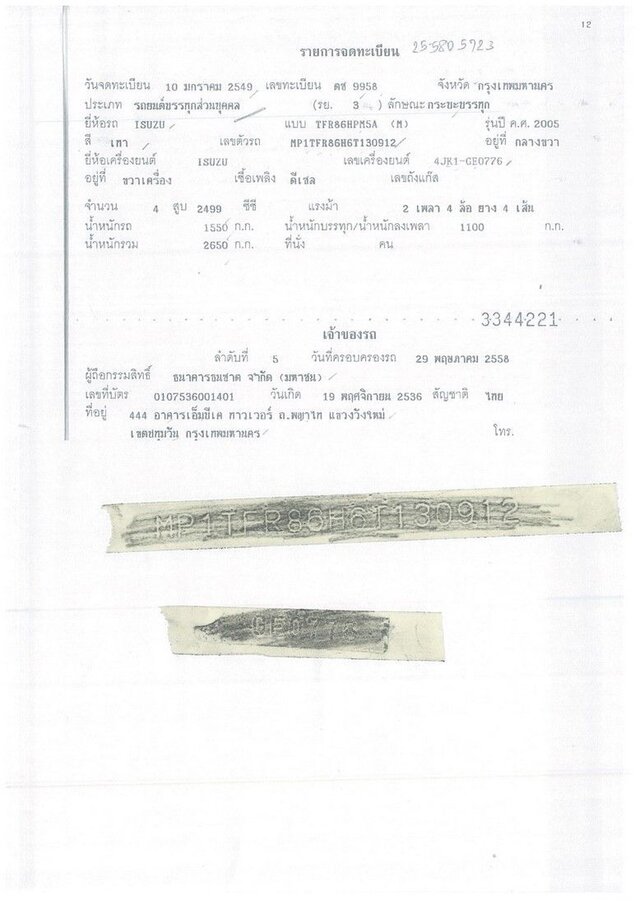 12
รายการจดทะเบียน 25-580 5923
วันจดทะเบียน 10 มกราคม 2549 เลขทะเบียน ตช 9958 จังหวัด กรุงเทพมหานคร
ประเภท รถยนต์บรรทุกส่วนบุคคล (รย. 3 ) ลักษณะ กระบะบรรทุก
ยี่ห้อรถ ISUZU แบบ TFR86HPM5A (M) รุ่นปี ค.ศ. 2005
สี เทา เลขตัวรถ MP1TFR86H6T130912 อยู่ที่ กลางขวา
ยี่ห้อเครื่องยนต์ ISUZU เลขเครื่องยนต์ 4JK1-CE0776
อยู่ที่ ขวาเครื่อง เชื้อเพลิง ดีเซล เลขถังแก๊ส
จำนวน 4 สูบ 2499 ซีซี แรงม้า 2 เพลา 4 ล้อ ยาง 4 เส้น
น้ำหนักรถ 1550 ก.ก. น้ำหนักบรรทุก/น้ำหนักลงเพลา 1100 ก.ก.
น้ำหนักรวม 2650 ก.ก. ที่นั่ง คน
3344221
เจ้าของรถ
ลำดับที่ 5 วันที่ครอบครองรถ 29 พฤษภาคม 2558
ผู้ถือกรรมสิทธิ์ ธนาคารธนชาต จำกัด (มหาชน)
เลขที่บัตร 0107536001401 วันเกิด 19 พฤศจิกายน 2536 สัญชาติ ไทย
ที่อยู่ 444 อาคารเอ็มบีเค ทาวเวอร์ ถ.พญาไท แขวงวังใหม่
เขตปทุมวัน กรุงเทพมหานคร โทร.
MP1TFR86H6T130912